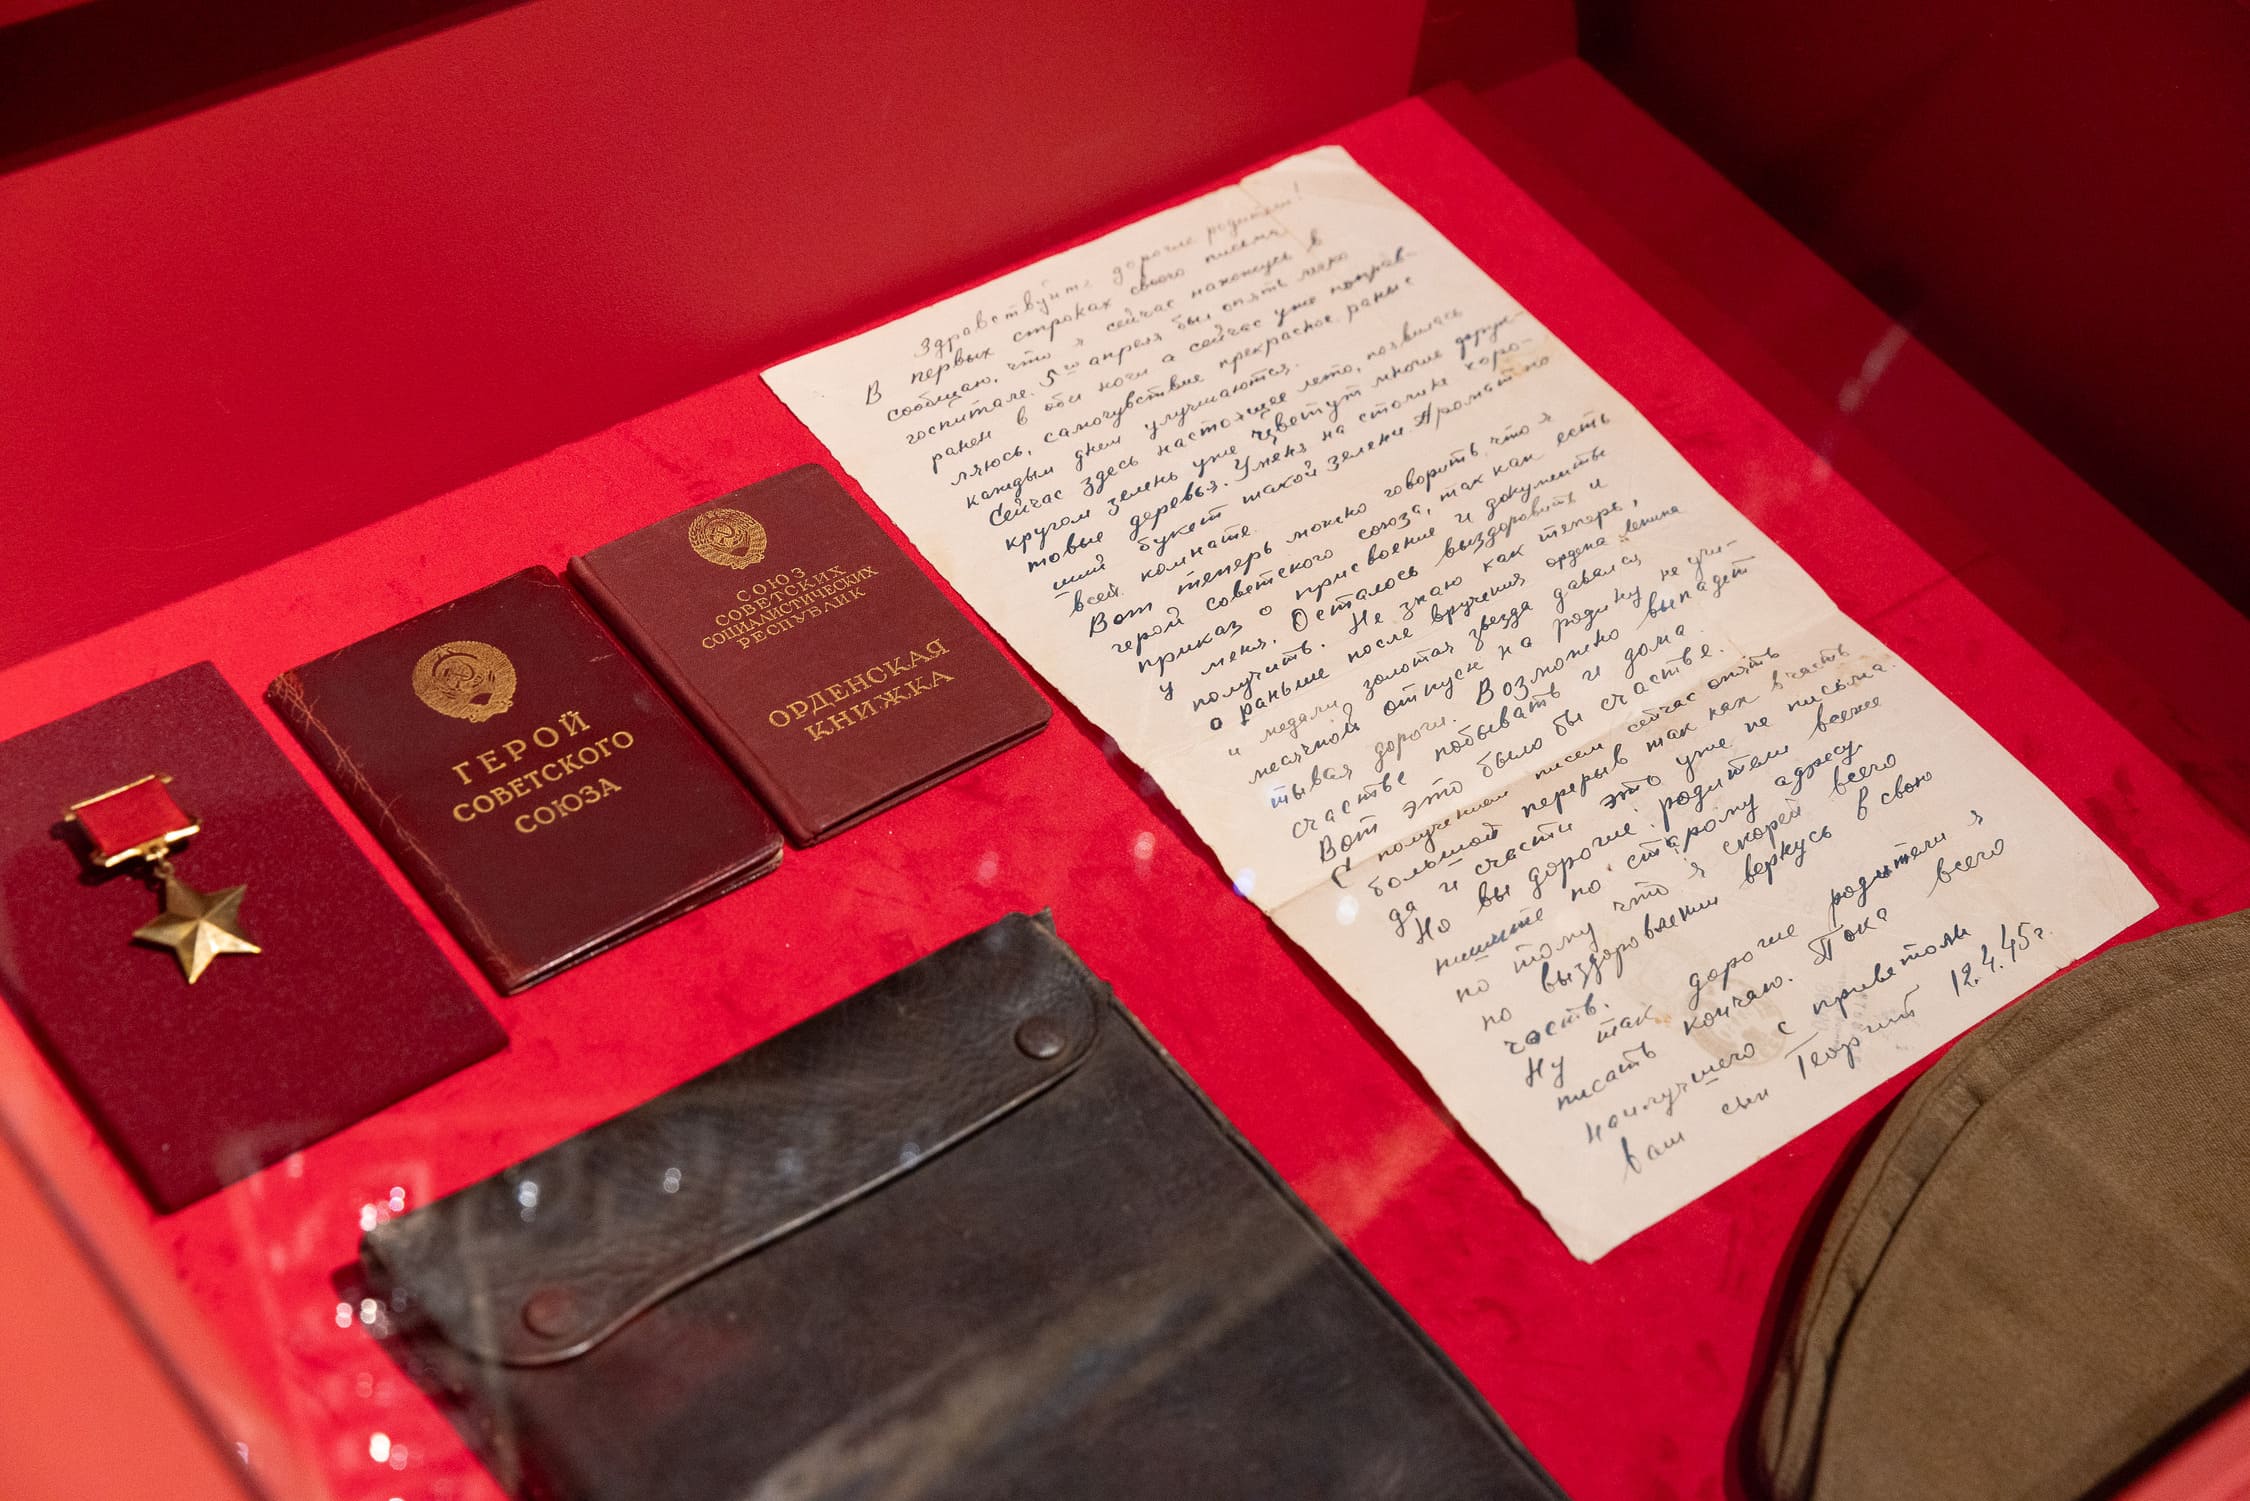 ГЕРОЙ
СОВЕТСКОГО
СОЮЗА
СОЮЗ
СОВЕТСКИХ
СОЦИАЛИСТИЧЕСКИХ
РЕСПУБЛИК
ОРДЕНСКАЯ
КНИЖКА
Здравствуйте дорогие родители!
В первых строках своего письма
сообщаю, что я сейчас нахожусь в
госпитале. 5го апреля был опять легко
ранен в обе ноги а сейчас уже поправ-
ляюсь, самочувствие прекрасное раны с
каждым днем улучшаются.
Сейчас здесь настоящее лето, появилась
кругом зелень уже цветут многие
товые деревья. У меня на столике хоро-
ший букет такой зелени. Аромат по
всей комнате.
Вот теперь можно говорить, что я
герой советского союза, так как есть
приказ о присвоение и документы
у меня. Осталось выздороветь и
получить. Не знаю как теперь,
а раньше после вручения ордена Ленина
и медали золотая звезда давался
месячной отпуск на родину не учи-
тывая дороги. Возможно выпадет
счастье побывать и дома.
Вот это было бы счастье.
С получением писем сейчас опять
большой перерыв так как в часть
да и счасти это уже не письма.
Но вы дорогие родители всеже
пишите по старому адресу,
по тому что я скорей всего
по выздоровлении вернусь в свою
часть.
Ну так дорогие родители я
писать кончаю. Пока всего
наилучшего с приветом
ваш сын Георгий 12.4.45г.